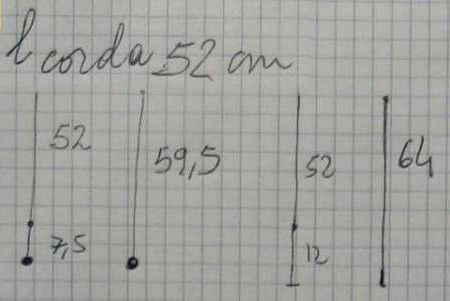 l corda 52 cm
52 59,5 52 64
7,5 12